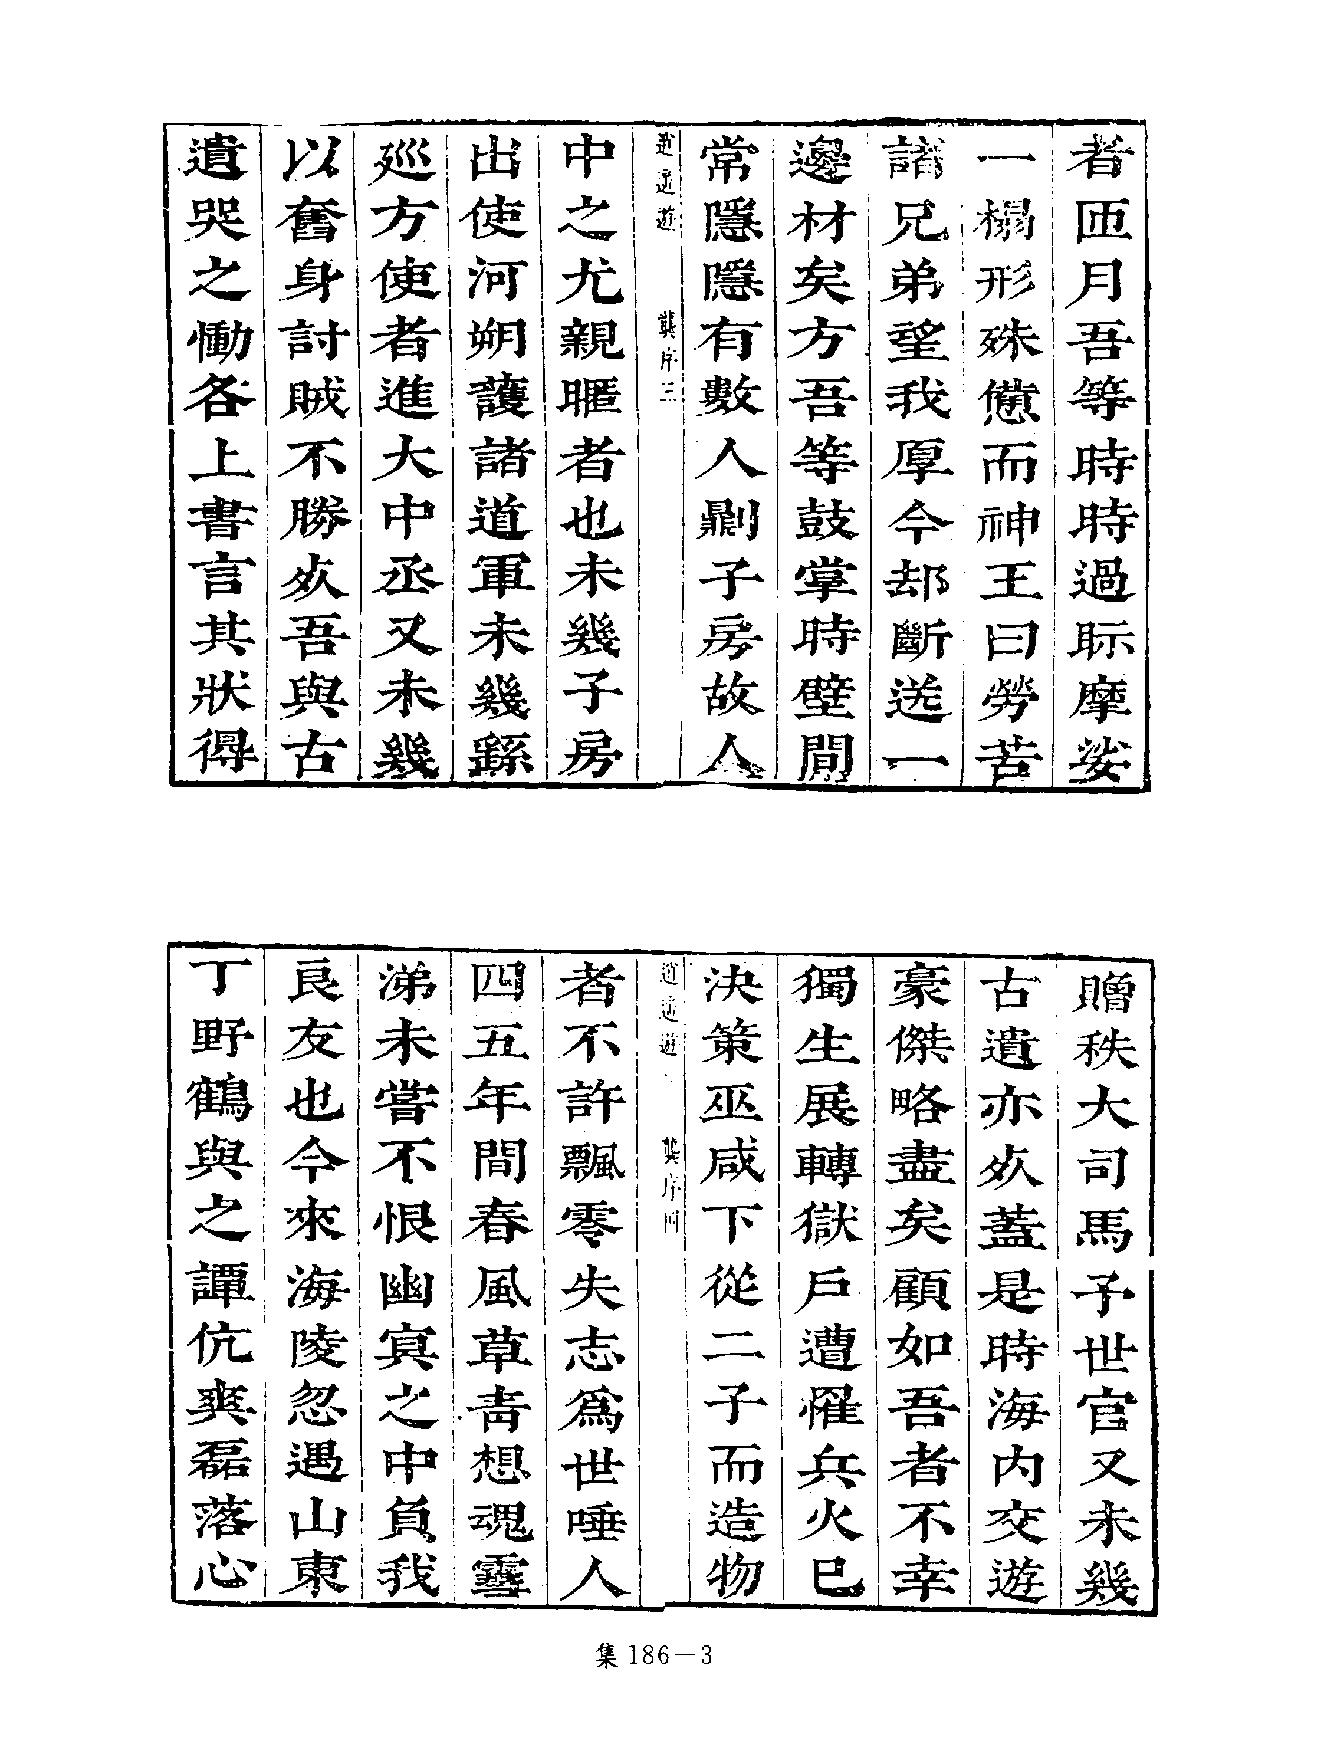 者匝月吾等時時過眎摩娑
一榻形殊憊而神王曰勞苦
諸兄弟望我厚今却斷送一
邊材矣方吾等鼓掌時壁間
常隱隱有數人劇子房故人
逍遙遊 龔序三
中之尤親暱者也未幾子房
出使河朔護諸道軍未幾繇
巡方使者進大中丞又未幾
以奮身討賊不勝死吾與古
遺哭之慟各上書言其狀得
贈秩大司馬予世官又未幾
古遺亦死蓋是時海内交遊
豪傑略盡矣顧如吾者不幸
獨生展轉獄戶遭罹兵火已
決策巫咸下從二子而造物
逍遙遊 龔序四
者不許飄零失志爲世唾人
四五年間春風草青想魂雪
涕未嘗不恨幽冥之中負我
良友也今來海陵忽遇山東
丁野鶴與之譚伉爽磊落心
集 186－3